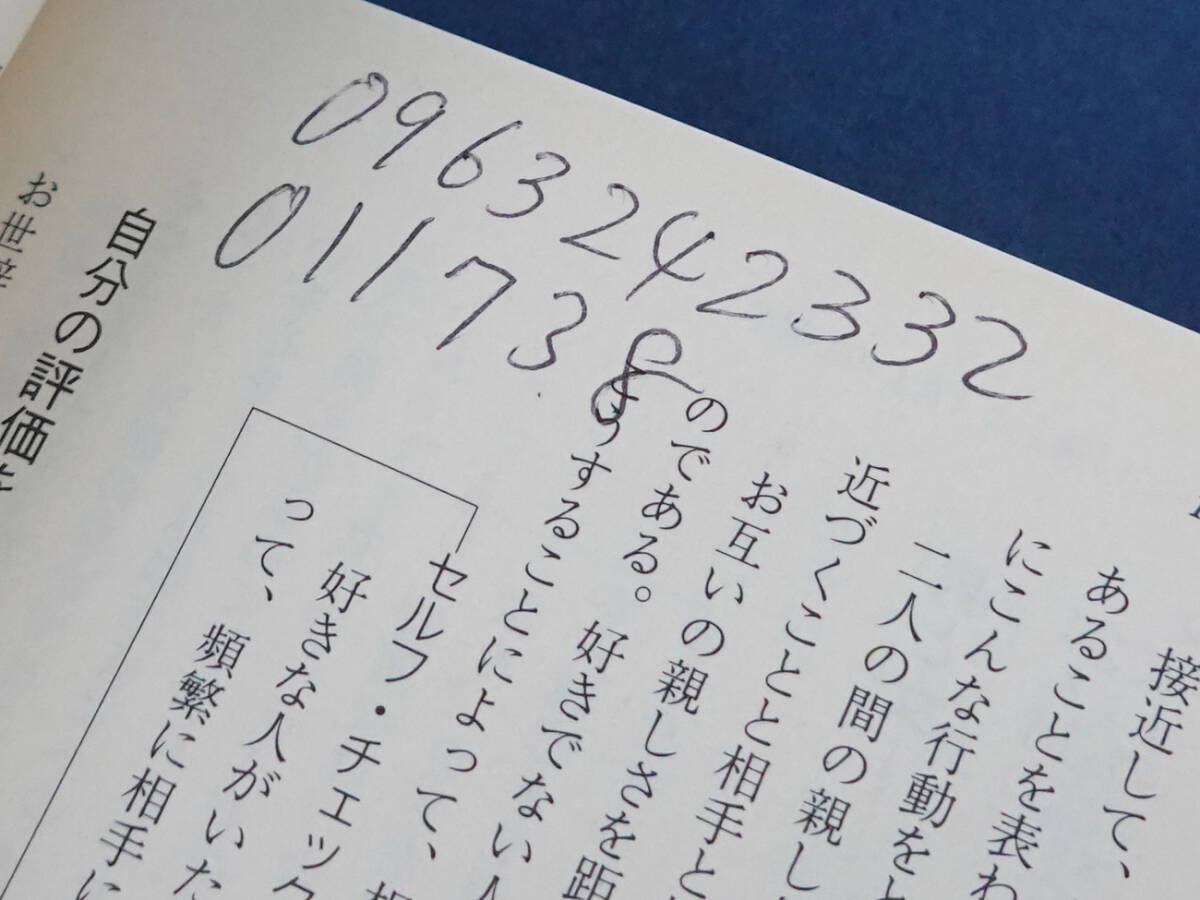 0963242332
011738
接近して、
あることを表わ
にこんな行動をと
二人の間の親し
近づくことと相手と
お互いの親しさを距
のである。好きでない人
うすることによって、
セルフ・チェック
好きな人がいた
って、頻繁に相手に
自分の評価
お世辞